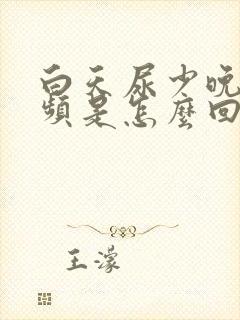 白天尿少晚
頻是怎麼回
王濛